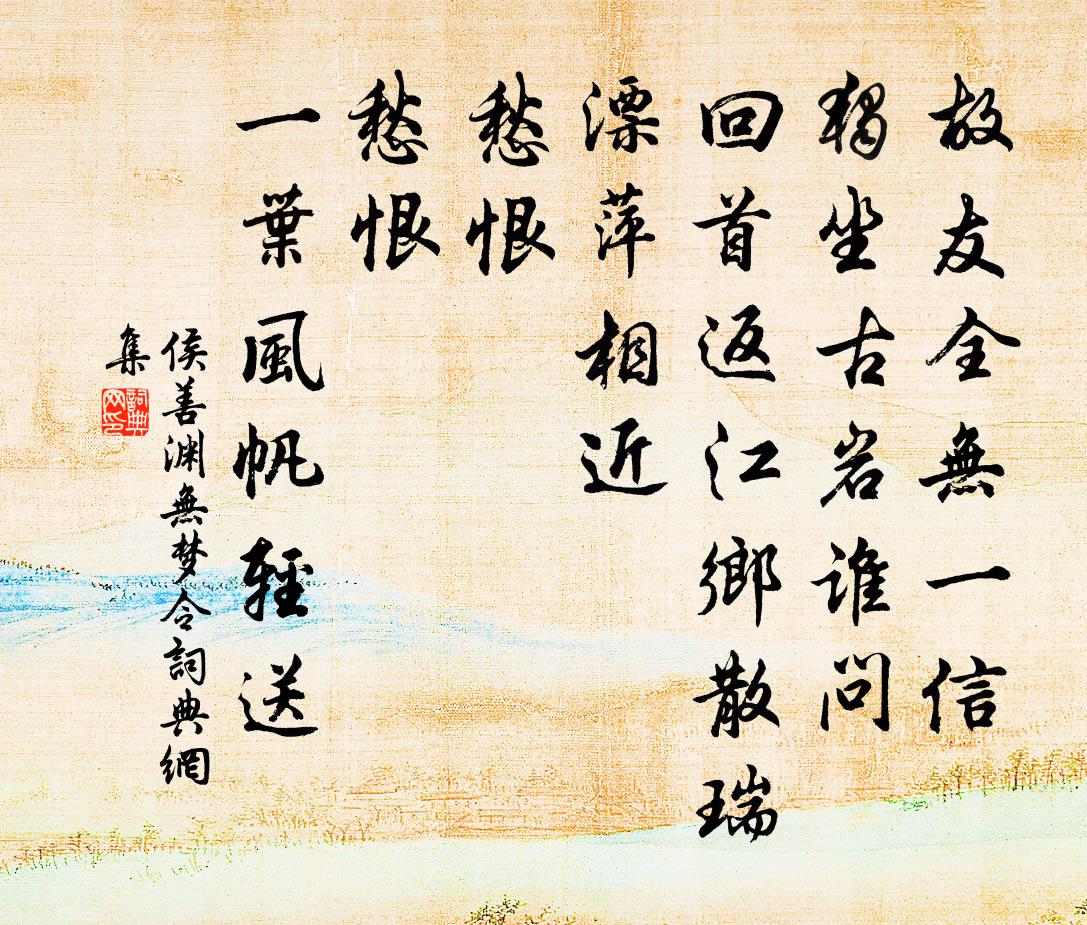 故友全無一信
獨坐古岩誰問
回首返江鄉散瑞
漂萍相近
愁恨
愁恨
一葉風帆輕送
侯善渊無梦令詞典網
集
詞典
网印